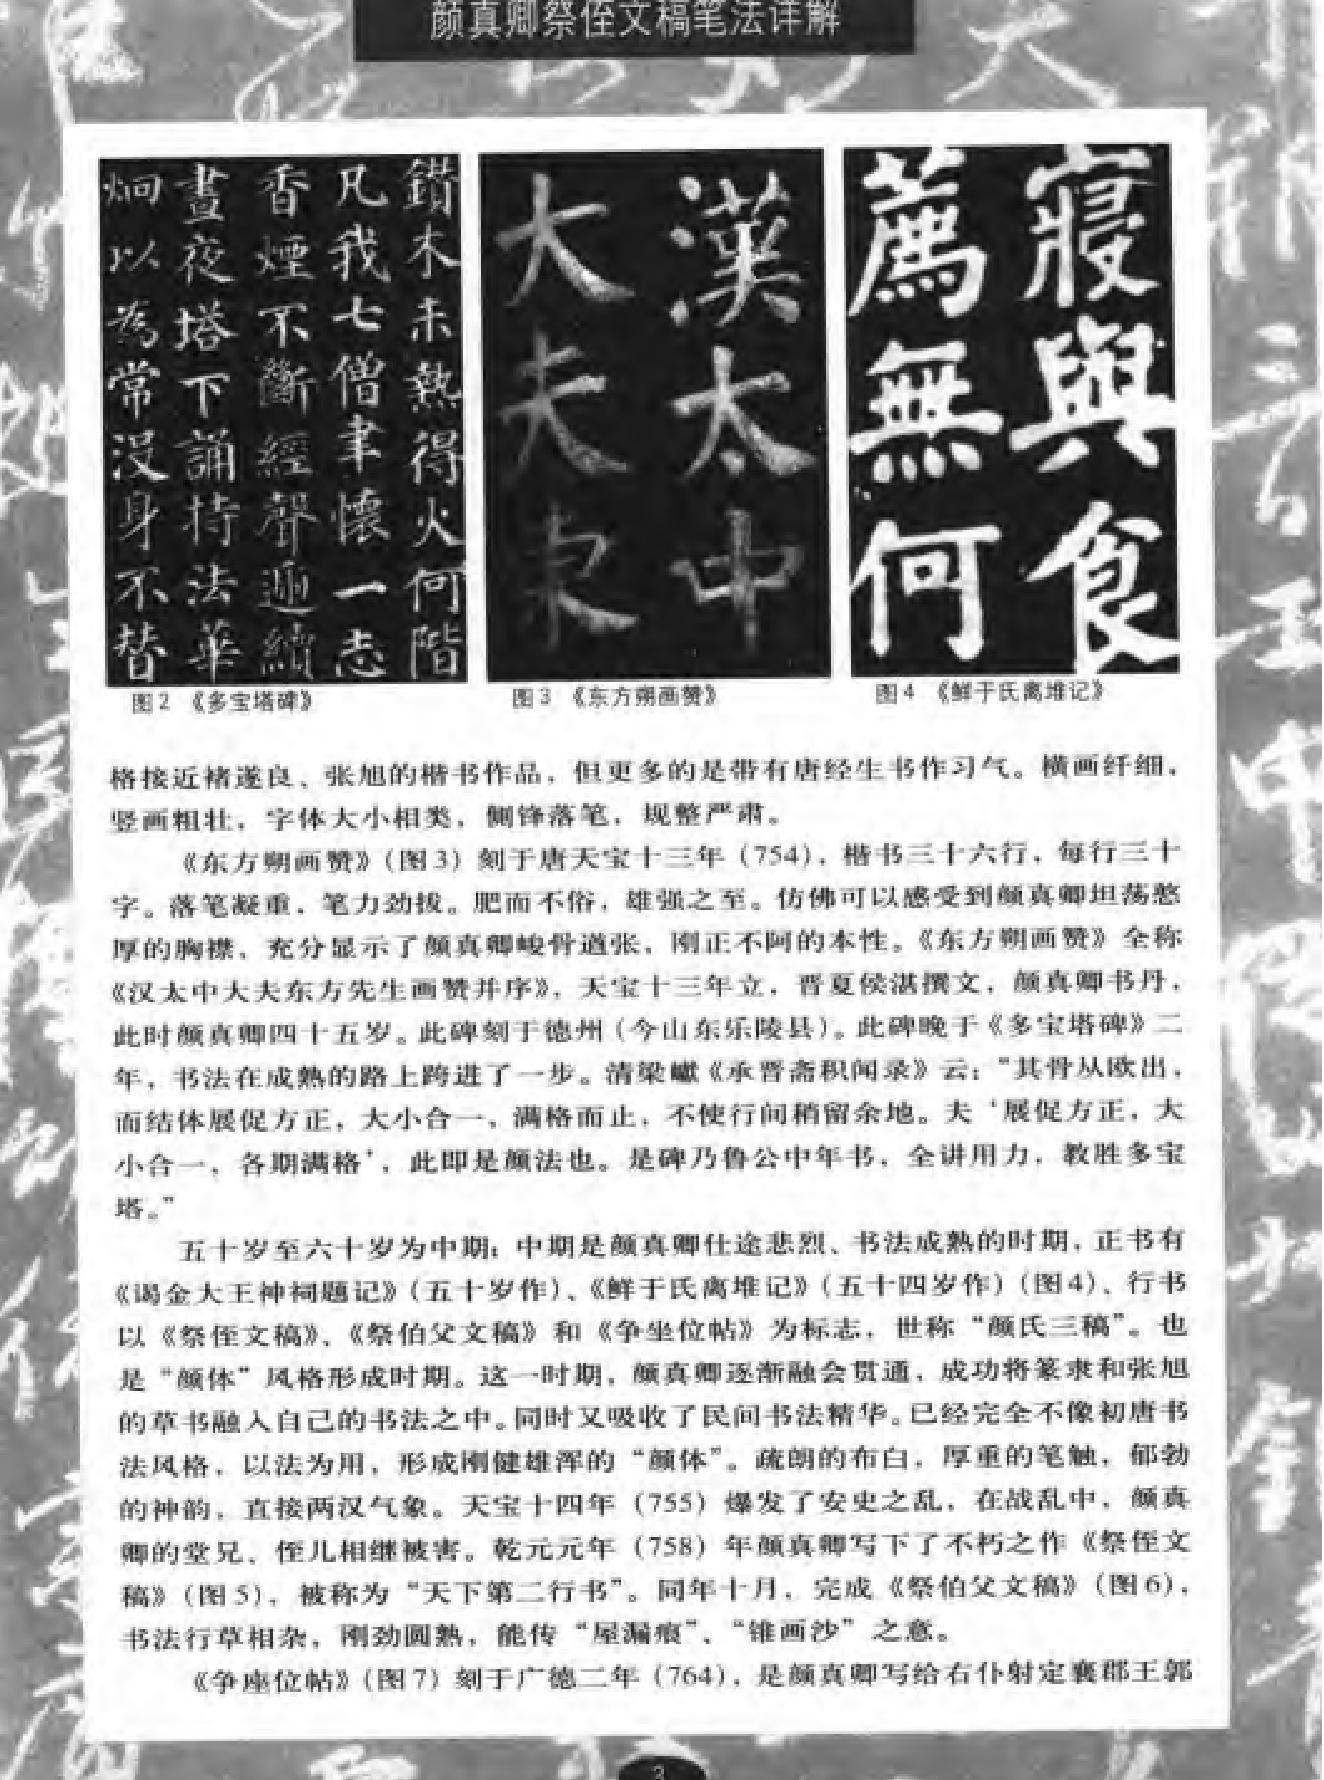 颜真卿祭侄文稿笔法详解
鑚木未熱得火何階
凡我七僧聿懷一志
香煙不斷經聲遞續
晝夜塔下誦持法華
炯以為常没身不替
漢太中
大夫東
寝興食
薦無何
图2 《多宝塔碑》
图3 《东方朔画赞》
图4 《鲜于氏离堆记》
格接近褚遂良、张旭的楷书作品，但更多的是带有唐经生书作习气。横画纤细，
竖画粗壮，字体大小相类，侧锋落笔，规整严肃。
《东方朔画赞》（图3）刻于唐天宝十三年（754），楷书三十六行，每行三十
字。落笔凝重，笔力劲拔。肥而不俗，雄强之至。仿佛可以感受到颜真卿坦荡憨
厚的胸襟，充分显示了颜真卿峻骨遒张，刚正不阿的本性。《东方朔画赞》全称
《汉太中大夫东方先生画赞并序》，天宝十三年立，晋夏侯湛撰文，颜真卿书丹，
此时颜真卿四十五岁。此碑刻于德州（今山东乐陵县）。此碑晚于《多宝塔碑》二
年，书法在成熟的路上跨进了一步。清梁巘《承晋斋积闻录》云：“其骨从欧出，
而结体展促方正，大小合一，满格而止，不使行间稍留余地。夫‘展促方正，大
小合一，各期满格’，此即是颜法也。是碑乃鲁公中年书，全讲用力，教胜多宝
塔。”
五十岁至六十岁为中期：中期是颜真卿仕途悲烈、书法成熟的时期，正书有
《谒金大王神祠题记》（五十岁作）、《鲜于氏离堆记》（五十四岁作）（图4）、行书
以《祭侄文稿》、《祭伯父文稿》和《争坐位帖》为标志，世称“颜氏三稿”。也
是“颜体”风格形成时期。这一时期，颜真卿逐渐融会贯通，成功将篆隶和张旭
的草书融入自己的书法之中。同时又吸收了民间书法精华。已经完全不像初唐书
法风格，以法为用，形成刚健雄浑的“颜体”。疏朗的布白，厚重的笔触，郁勃
的神韵，直接两汉气象。天宝十四年（755）爆发了安史之乱，在战乱中，颜真
卿的堂兄、侄儿相继被害。乾元元年（758）年颜真卿写下了不朽之作《祭侄文
稿》（图5），被称为“天下第二行书”。同年十月，完成《祭伯父文稿》（图6），
书法行草相杂，刚劲圆熟，能传“屋漏痕”、“锥画沙”之意。
《争座位帖》（图7）刻于广德二年（764），是颜真卿写给右仆射定襄郡王郭
3